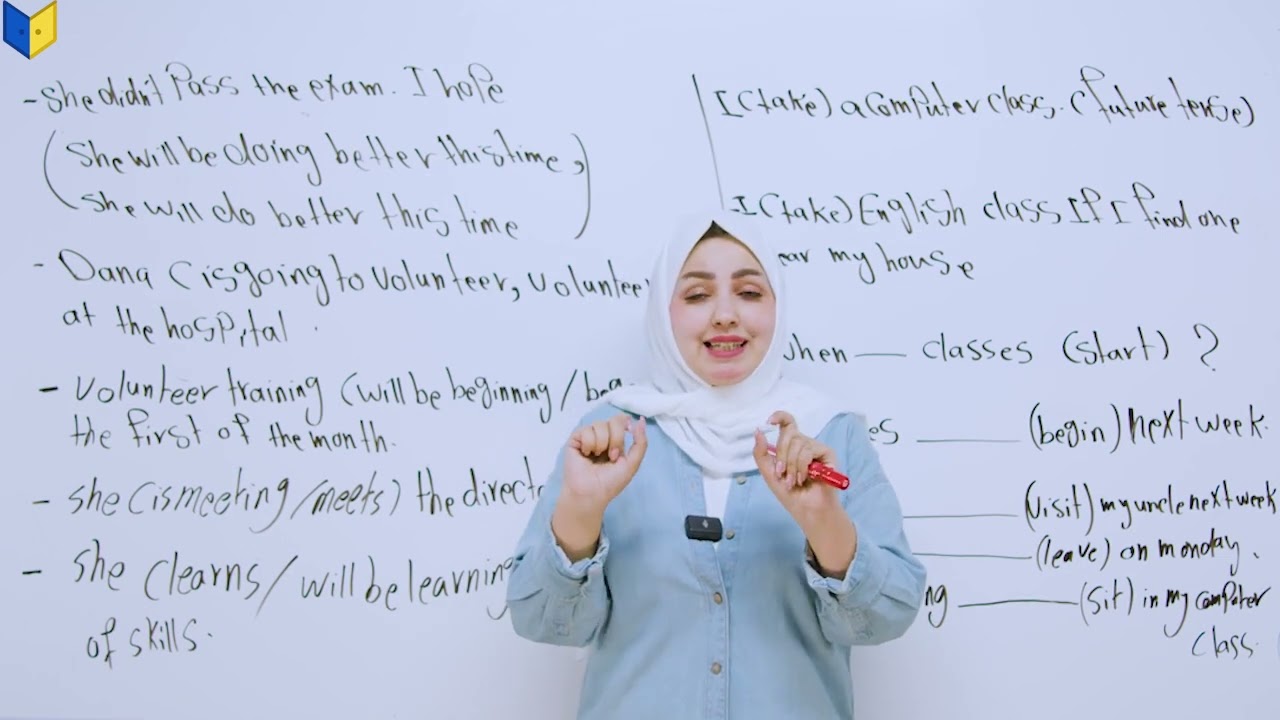 - She didn't Pass the exam. I hope
(She will be doing better this time,
she will do better this time)
- Dana (is going to volunteer, volunteer
at the hospital.
- volunteer training (will be beginning /
the first of the month.
- she (is meeting / meets) the
- she (learns / will be learning
of skills.
I (take) a computer class. (future tense)
I (take) English class If I find one
my house
when — classes (start) ?
(begin) next week.
(visit) my uncle next week
(leave) on monday.
(sit) in my computer
class.